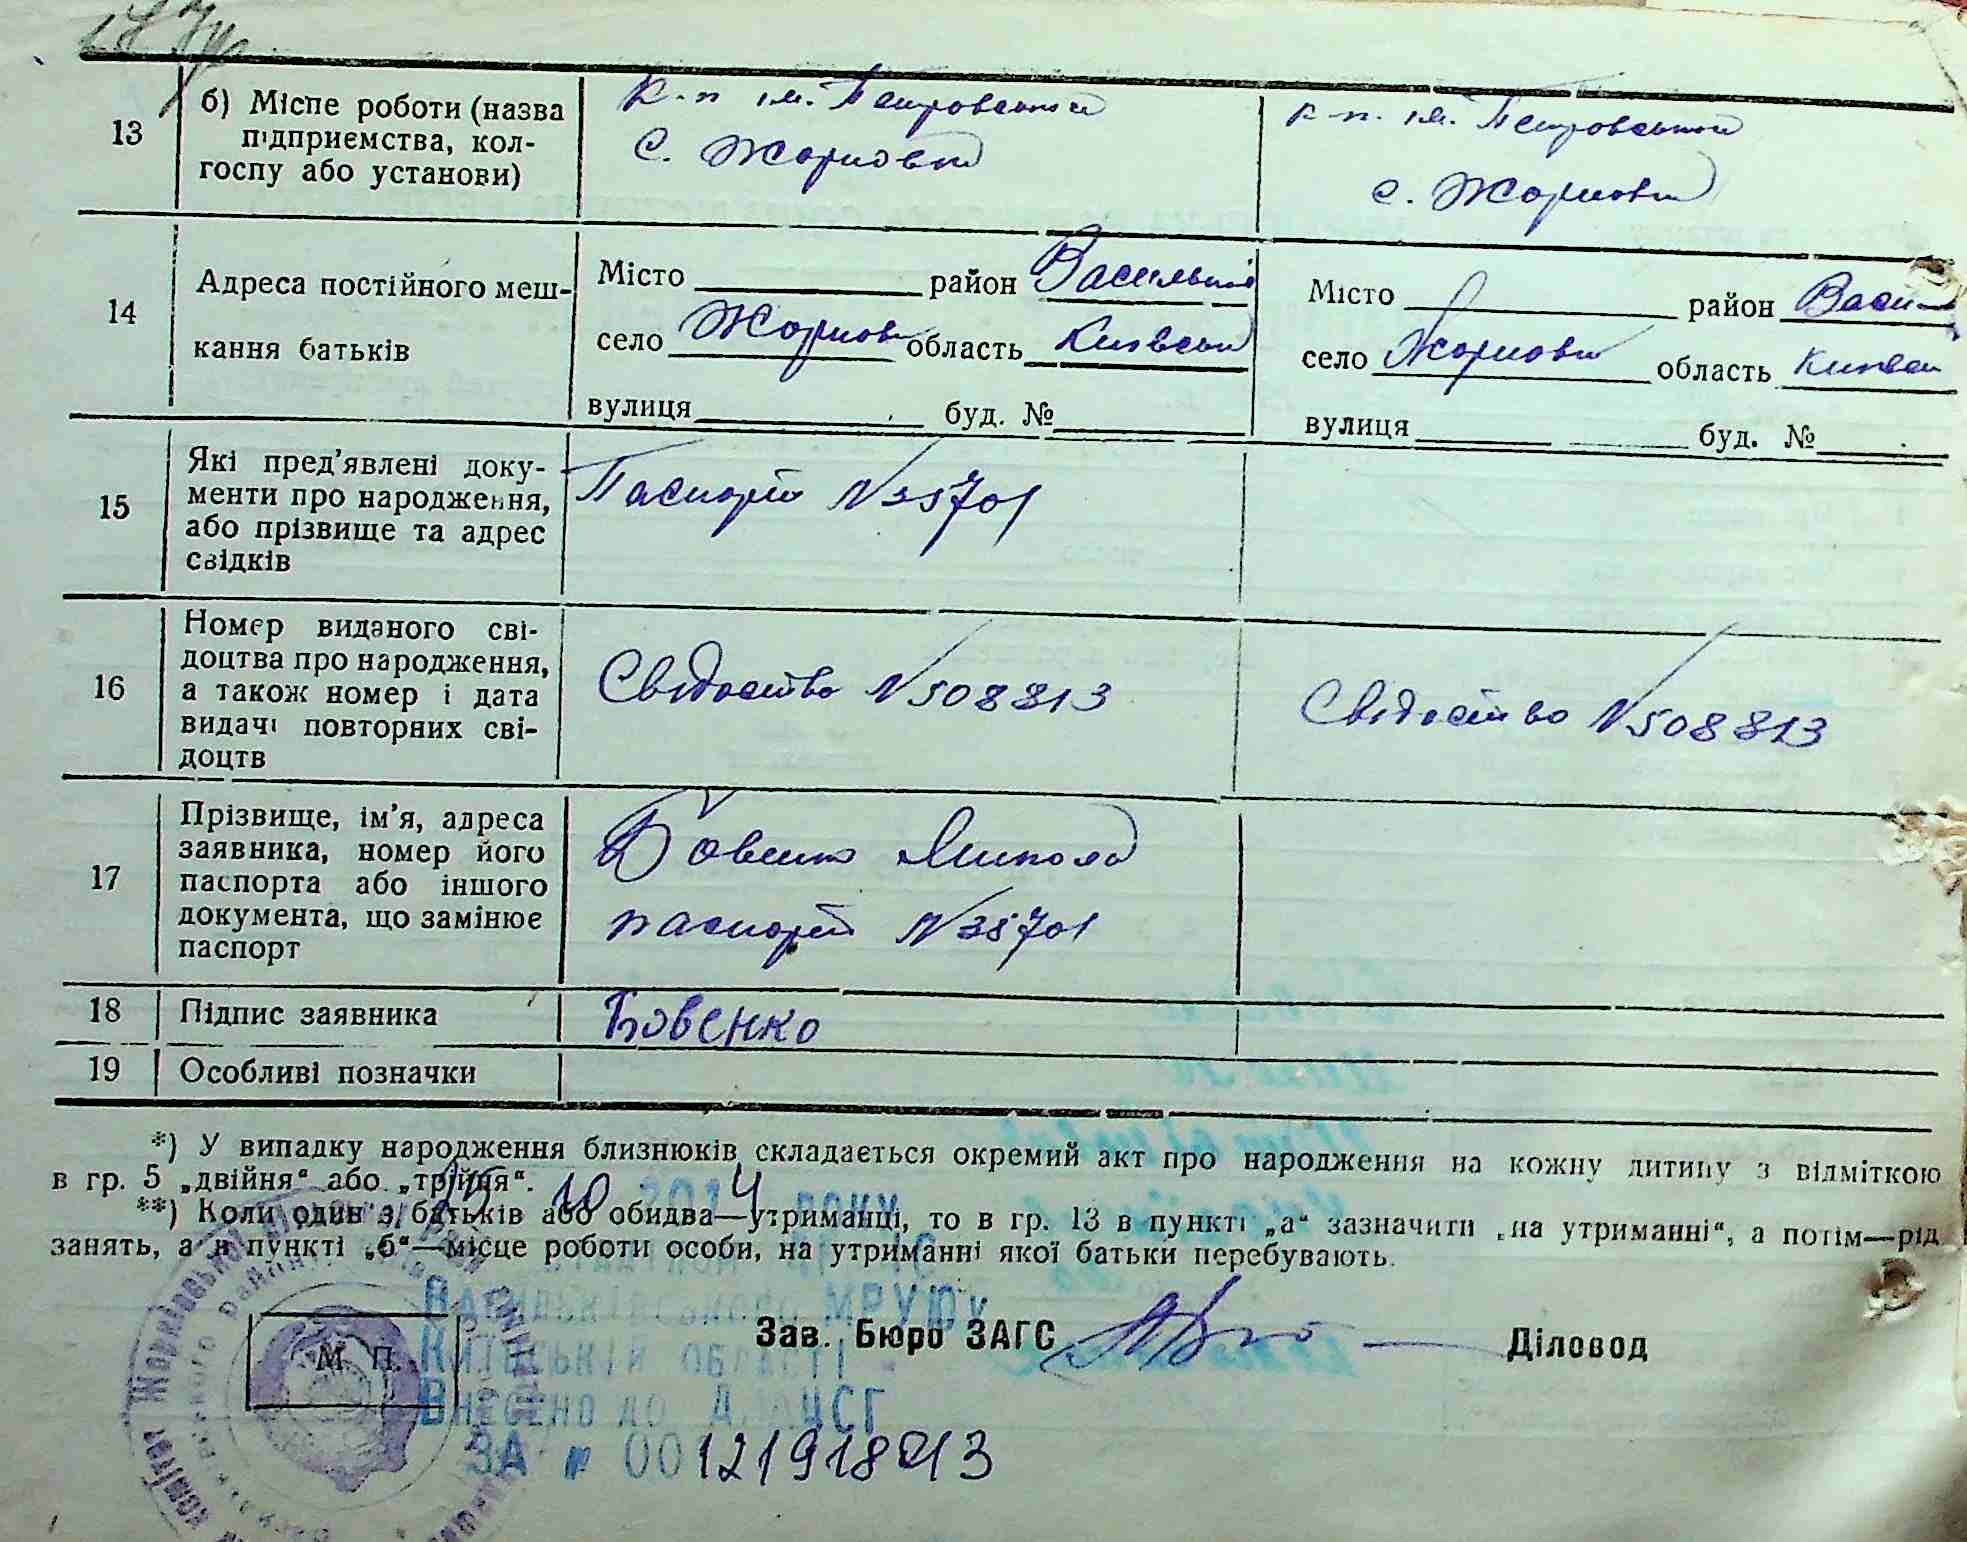 13
б) Місце роботи (назва
підприємства, кол-
госпу або установи)
к-п ім. Петровського
с. Жорновка
к-п. ім. Петровського
с. Жорновка
14
Адреса постійного меш-
кання батьків
Місто район Васильків
село Жорновка область Київська
вулиця буд. №
Місто район Васи
село Жорновка область Київськ
вулиця буд. №
15
Які пред'явлені доку-
менти про народження,
або прізвище та адрес
свідків
Паспорт N 35701
16
Номер виданого сві-
доцтва про народження,
а також номер і дата
видачі повторних сві-
доцтв
Свідоство N 508813
Свідоство N 508813
17
Прізвище, ім'я, адреса
заявника, номер його
паспорта або іншого
документа, що замінює
паспорт
Бовенко Микола
паспорт N 35701
18 Підпис заявника Бовенко
19 Особливі позначки
*) У випадку народження близнюків складається окремий акт про народження на кожну дитину з відміткою
в гр. 5 „двійня“ або „трійня“.
**) Коли один з батьків або обидва—утриманці, то в гр. 13 в пункті „а“ зазначити „на утриманні“, а потім—рід
занять, а в пункті „б“—місце роботи особи, на утриманні якої батьки перебувають.
10 2014 року
Васильківського МРУЮ
Київській області
Внесено до ДРАЦСГ
ЗА № 00121918413
М. П.
Зав. Бюро ЗАГС
Діловод